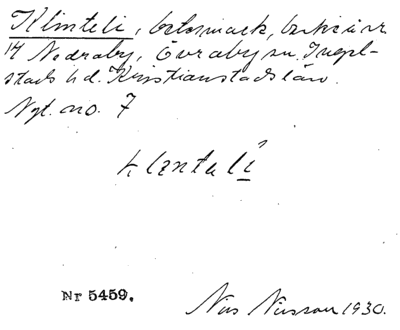 Klinteli, betesmark,
14 Nedraby, Övraby sn, Ingel-
stads hd. Kristianstads län.
Nyt. no. 7
klenteli
Nr 5459.
Nils Nilsson 1930.